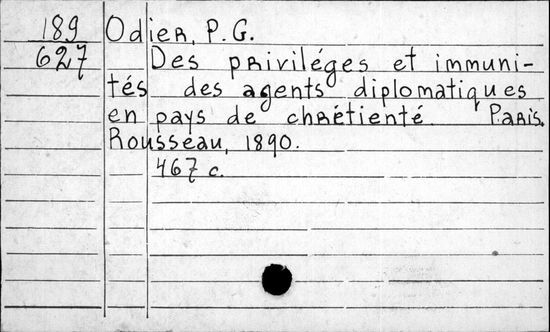 189
627
Odier, P. G.
Des priviléges et immuni-
tés des agents diplomatiques
en pays de chrétienté Paris.
Rousseau, 1890.
467 c.